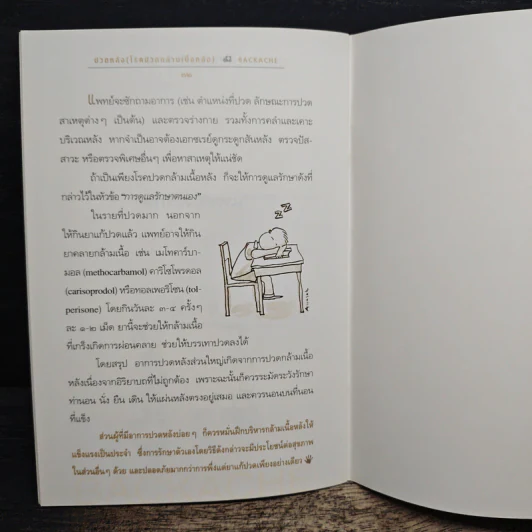 ปวดหลัง(โรคปวดกล้ามเนื้อหลัง) BACKACHE
แพทย์จะซักถามอาการ (เช่น ตำแหน่งที่ปวด ลักษณะการปวด
สาเหตุต่างๆ เป็นต้น) และตรวจร่างกาย รวมทั้งการคลำและเคาะ
บริเวณหลัง หากจำเป็นอาจต้องเอกซเรย์ดูกระดูกสันหลัง ตรวจปัส-
สาวะ หรือตรวจพิเศษอื่นๆ เพื่อหาสาเหตุให้แน่ชัด
ถ้าเป็นเพียงโรคปวดกล้ามเนื้อหลัง ก็จะให้การดูแลรักษาดังที่
กล่าวไว้ในหัวข้อ "การดูแลรักษาตนเอง"
ในรายที่ปวดมาก นอกจาก
ให้กินยาแก้ปวดแล้ว แพทย์อาจให้กิน
ยาคลายกล้ามเนื้อ เช่น เมโทคาร์บา-
มอล (methocarbamol) คาริโซโพรดอล
(carisoprodol) หรือทอลเพอริโซน (tol-
perisone) โดยกินวันละ ๓-๔ ครั้งๆ
ละ ๑-๒ เม็ด ยานี้จะช่วยให้กล้ามเนื้อ
ที่เกร็งเกิดการผ่อนคลาย ช่วยให้บรรเทาปวดลงได้
zzz
โดยสรุป อาการปวดหลังส่วนใหญ่เกิดจากการปวดกล้ามเนื้อ
หลังเนื่องจากอิริยาบถที่ไม่ถูกต้อง เพราะฉะนั้นก็ควรระมัดระวังรักษา
ท่านอน นั่ง ยืน เดิน ให้แผ่นหลังตรงอยู่เสมอ และควรนอนบนที่นอน
ที่แข็ง
ส่วนผู้ที่มีอาการปวดหลังบ่อยๆ ก็ควรหมั่นฝึกบริหารกล้ามเนื้อหลังให้
แข็งแรงเป็นประจำ ซึ่งการรักษาตัวเองโดยวิธีดังกล่าวจะมีประโยชน์ต่อสุขภาพ
ในส่วนอื่นๆ ด้วย และปลอดภัยมากกว่าการพึ่งแต่ยาแก้ปวดเพียงอย่างเดียว